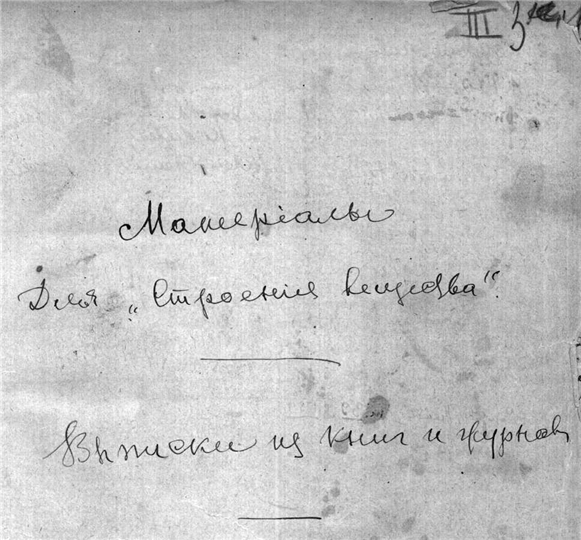 III
Матеріалы
Для „Строенія вещества“.
Выписки из книг и журнал